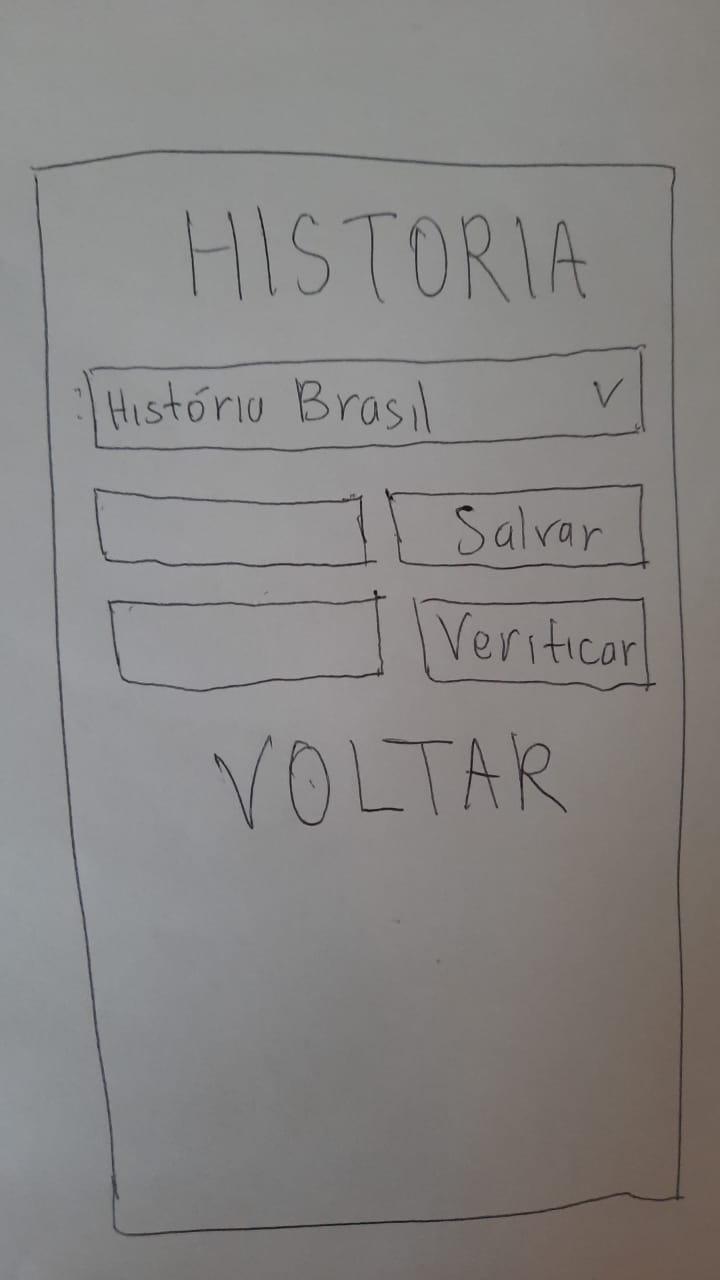 HISTORIA
História Brasil V
Salvar
Verificar
VOLTAR